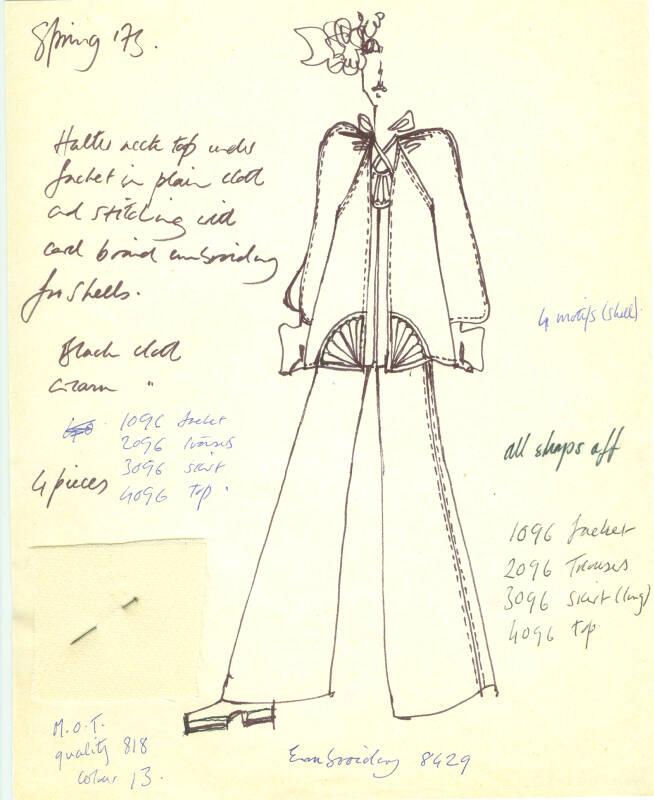 Spring '73.
Halter neck top under
Jacket in plain cloth
and stitching with
cord braid embroidery
for shells.
Black cloth
Cream "
1096 Jacket
2096 Trousers
3096 skirt
4096 top.
4 pieces
M.O.T.
quality 818
colour 13.
Embroidery 8429
4 motifs (shell).
all shops off
1096 Jacket
2096 Trousers
3096 skirt (long)
4096 top.